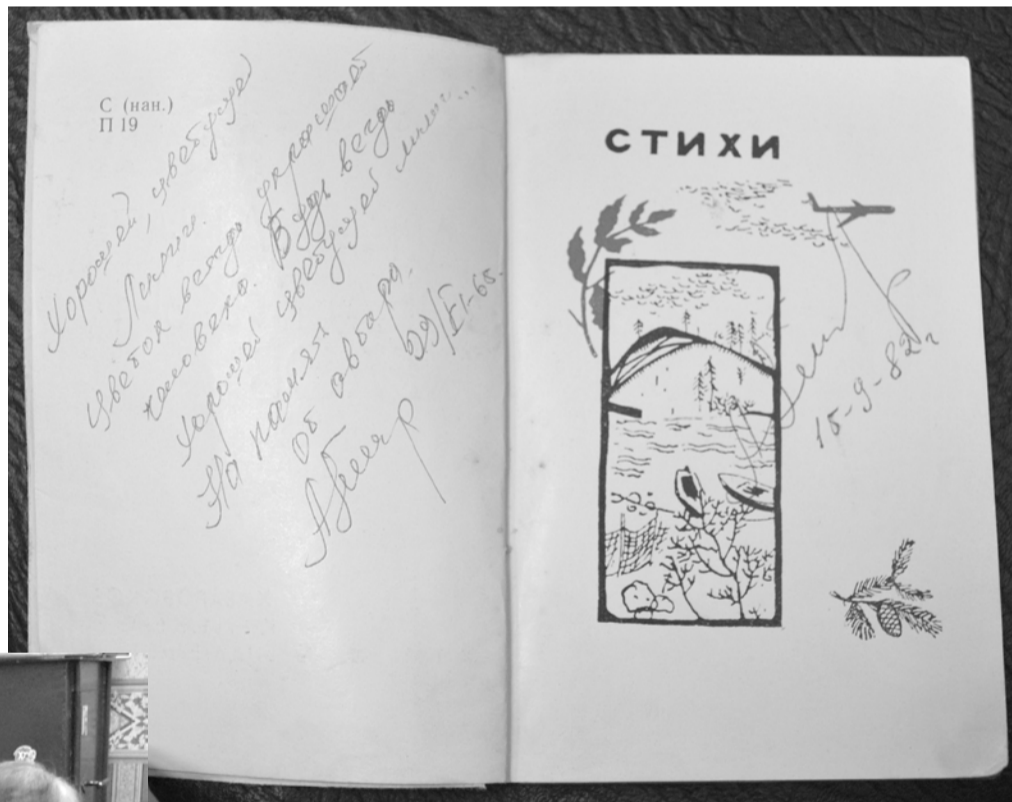 С (нан.)
П 19
Хорошей, цветущей
Лилии.
Цветок всегда украшает
человека. Будь всегда
хорошей цветущей
На память
Об овтара.
СТИХИ
15-9-82 г